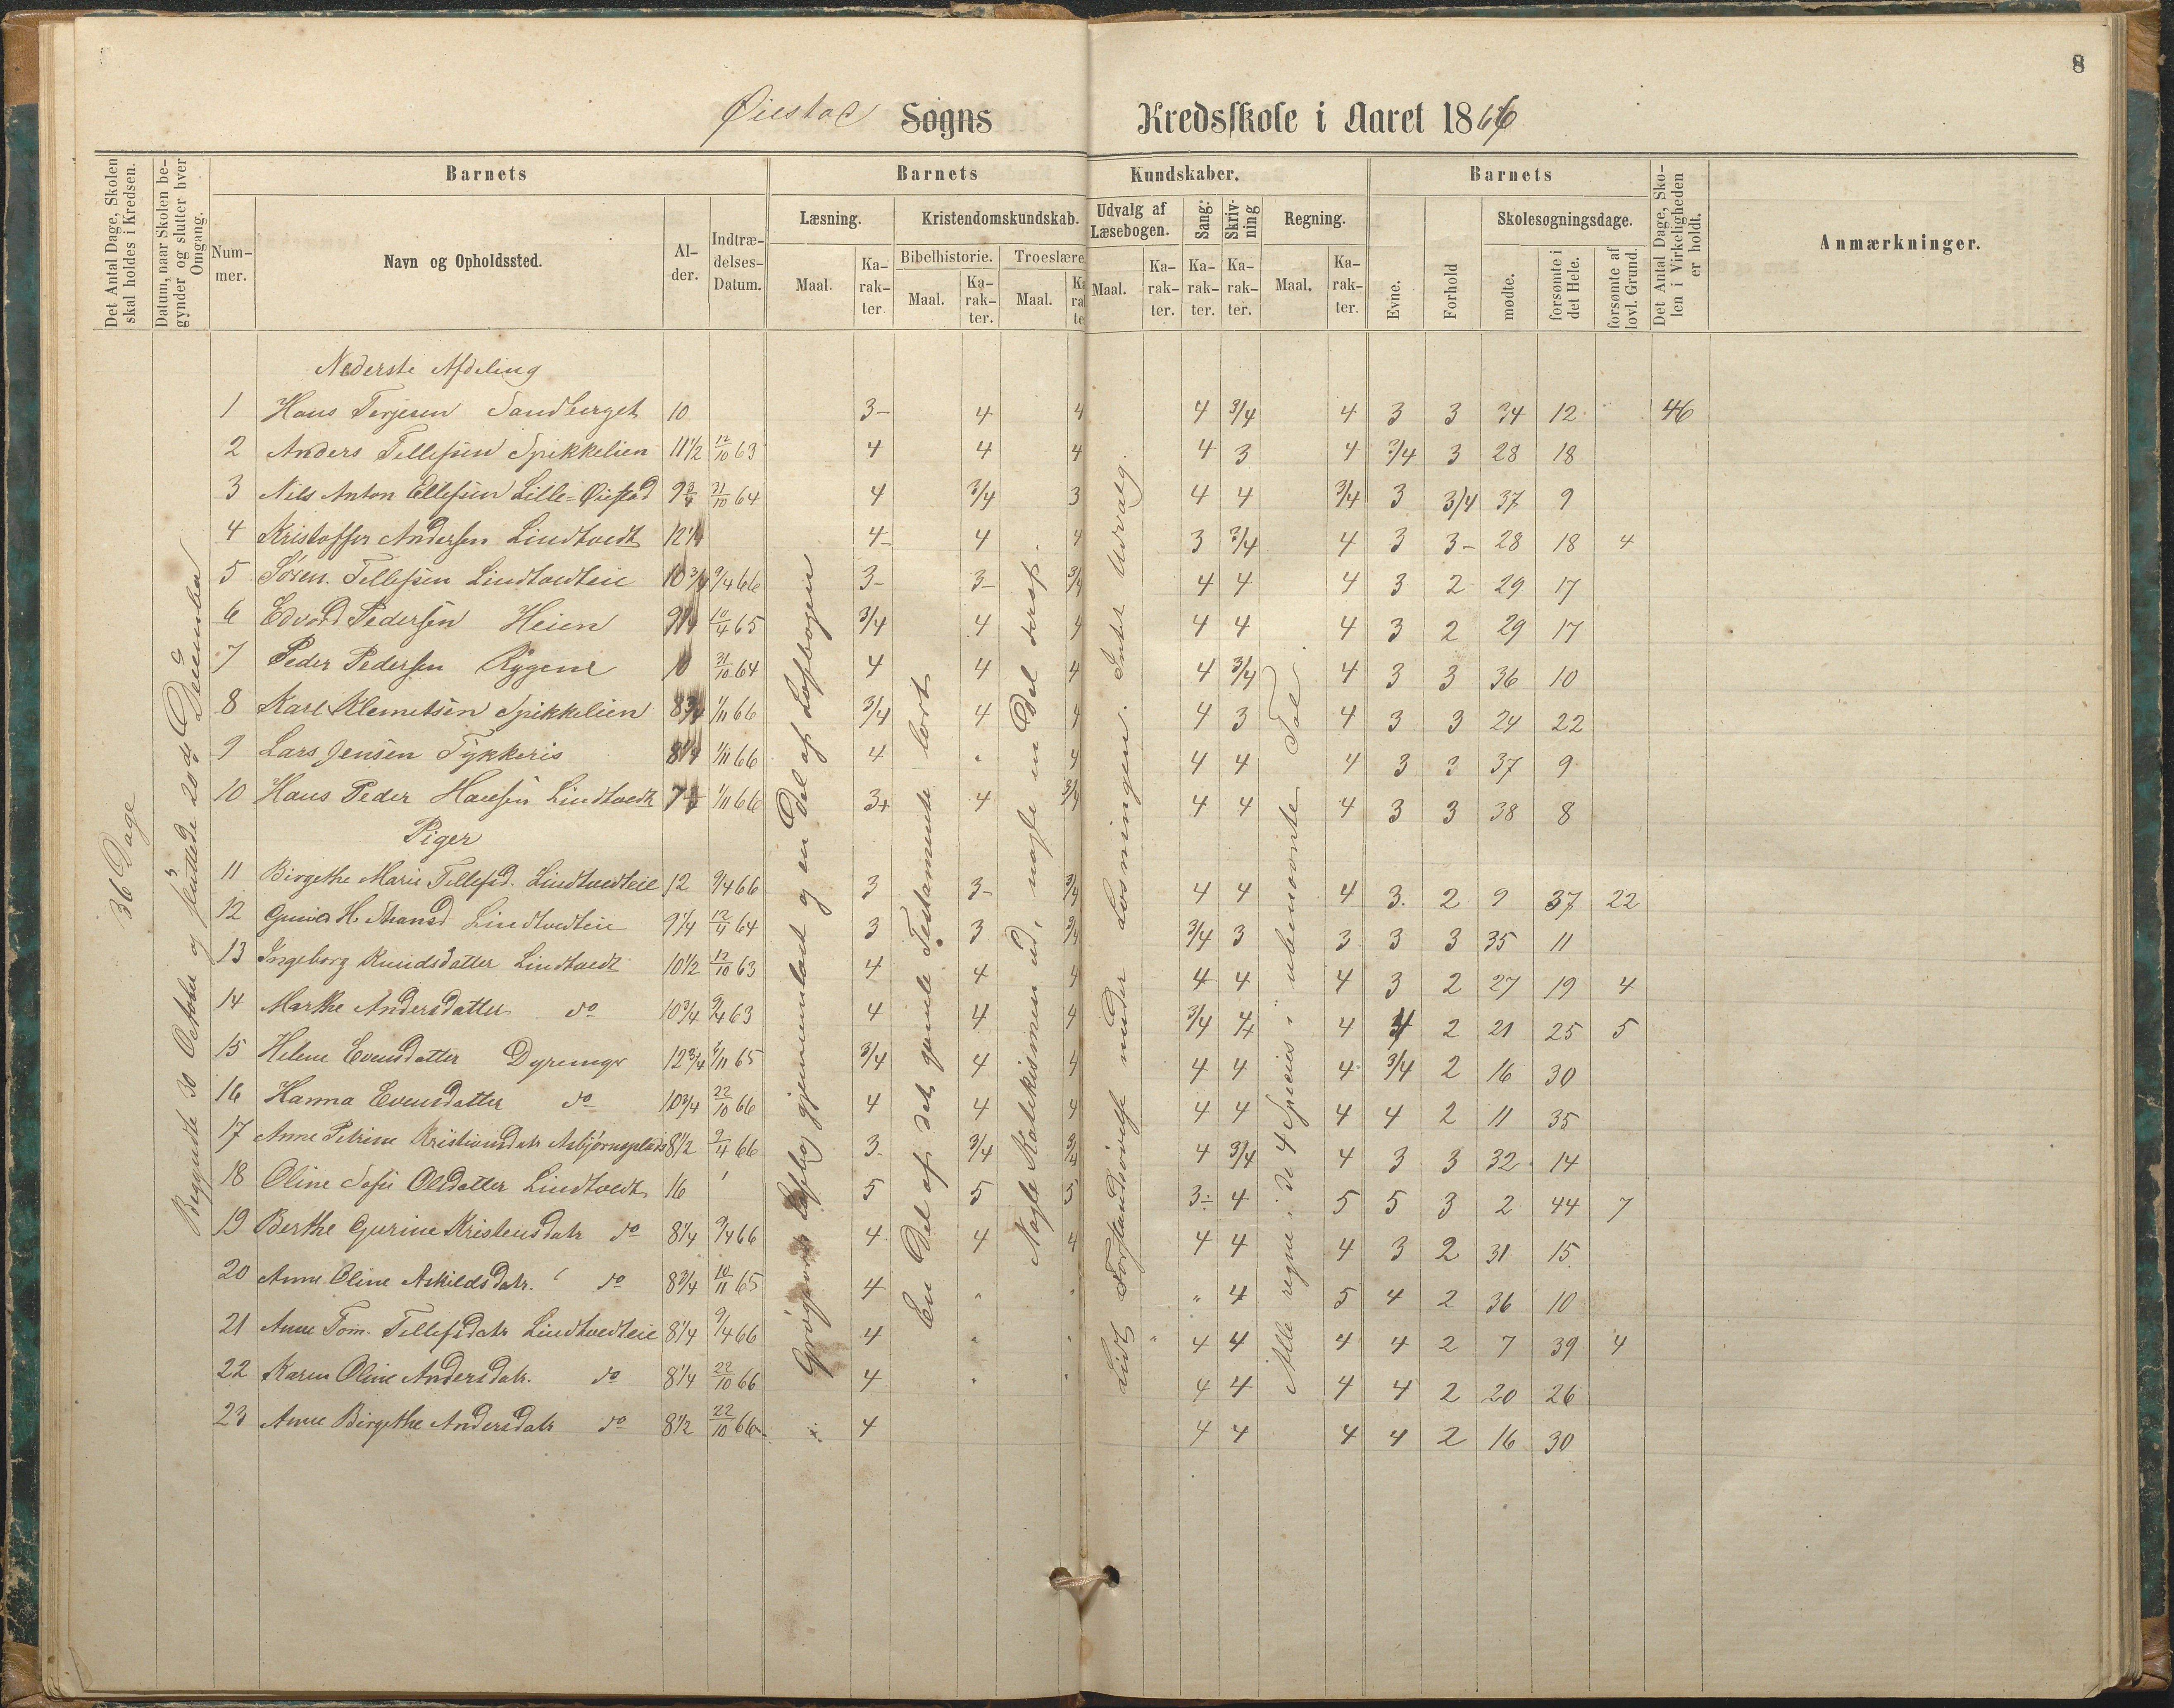 8
Øiestad Sogns Kredsskole i Aaret 1866
Det Antal Dage, Skolen skal holdes i Kredsen.
Datum, naar Skolen begynder og slutter hver Omgang.
Barnets
Nummer.
Navn og Opholdssted.
Alder.
Indtrædelses-Datum.
Barnets Kundskaber.
Læsning.
Maal.
Karakter.
Kristendomskundskab.
Bibelhistorie.
Maal.
Karakter.
Troeslære
Maal.
Udvalg af Læsebogen.
Maal.
Karakter.
Sang:
Karakter.
Skrivning
Karakter.
Regning.
Maal.
Karakter.
Barnets
Evne.
Forhold
Skolesøgningsdage.
mødte.
forsømte i det Hele.
forsømte af lovl. Grund.
Det Antal Dage, Skolen i Virkeligheden er holdt.
Anmærkninger.
36 Dage
Begyndte 30 October og sluttede 20de December
Nederste Afdeling
1 Hans Terjesen Sandberget 10 3- 4 4 4 3/4 4 3 3 34 12 46
2 Anders Tellefsen Spikkelien 11 1/2 12/10 63 4 4 4 4 3 4 3/4 3 28 18
3 Nils Anton Ellefsen Lille-Øiestad 9 3/4 31/10 64 4 3/4 3 4 4 3/4 3 3/4 37 9
4 Kristoffer Andersen Lindtvedt 4- 4 4 3 3/4 4 3 3- 28 18 4
5 Søren Tellefsen Lindtvedteie 10 3/4 9/4 66 3- 3- 3/4 4 4 4 3 2 29 17
6 Edvard Pedersen Heien 10/4 65 3/4 4 4 4 4 4 3 2 29 17
7 Peder Pedersen Rygene 10 31/10 64 4 4 4 4 3/4 4 3 3 36 10
8 Karl Klemetsen Spikkelien 8 3/4 1/11 66 3/4 4 4 4 3 4 3 3 24 22
9 Lars Jensen Tykkeris 8 1/4 1/11 66 4 " 4 4 4 4 3 3 37 9
10 Hans Peder Hansen Lindtvedt 7 1/11 66 3+ 4 3/4 4 4 4 3 3 38 8
Piger
11 Birgethe Marie Tellefsd. Lindtvedteie 12 9/4 66 3 3- 3/4 4 4 4 3. 2 9 37 22
12 H. Lindtvedteie 9 1/4 12/4 64 3 3 3/4 3/4 3 3 3 3 35 11
13 Ingeborg Knudsdatter Lindtvedt 10 1/2 12/10 63 4 4 4 4 4 4 3 2 27 19 4
14 Marthe Andersdatter do 10 3/4 9/4 63 4 4 4 3/4 4 4 4 2 21 25 5
15 Helene Evensdatter 12 3/4 /11 65 3/4 4 4 4 4 4 3/4 2 16 30
16 Hanna Evensdatter do 10 3/4 22/10 66 4 4 4 4 4 4 4 2 11 35
17 Anne Petrine Kristiansdatr Asbjørnsplads 8 1/2 9/4 66 3- 3/4 3/4 4 3/4 4 3 3 32 14
18 Oline Sofie Olsdatter Lindtvedt 16 5 5 5 3÷ 4 5 5 3 2 44 7
19 Berthe Gurine Kristensdatr do 8 1/4 9/4 66 4 4 4 4 4 4 3 2 31 15
20 Anne Oline Askildsdatr. do 8 3/4 10/11 65 4 " " " 4 5 4 2 36 10
21 Anne Tom. Tellefsdatr Lindtvedteie 8 1/4 9/4 66 4 " " " 4 4 4 4 2 7 39 4
22 Karen Oline Andersdatr. do 8 1/4 22/10 66 4 " " 4 4 4 4 2 20 26
23 Anne Birgethe Andersdatr do 8 1/2 22/10 66 4 4 4 4 4 2 16 30
gjennemlæst og en Del af Læsebogen
En Del af det gamle Testamente lært
Nogle Katekismen ud, nogle en Del deraf.
Lidt Forstandsøvelse under Læsningen. Intet Udvalg.
Alle regne i de 4 Species i ubenævnte Tal.